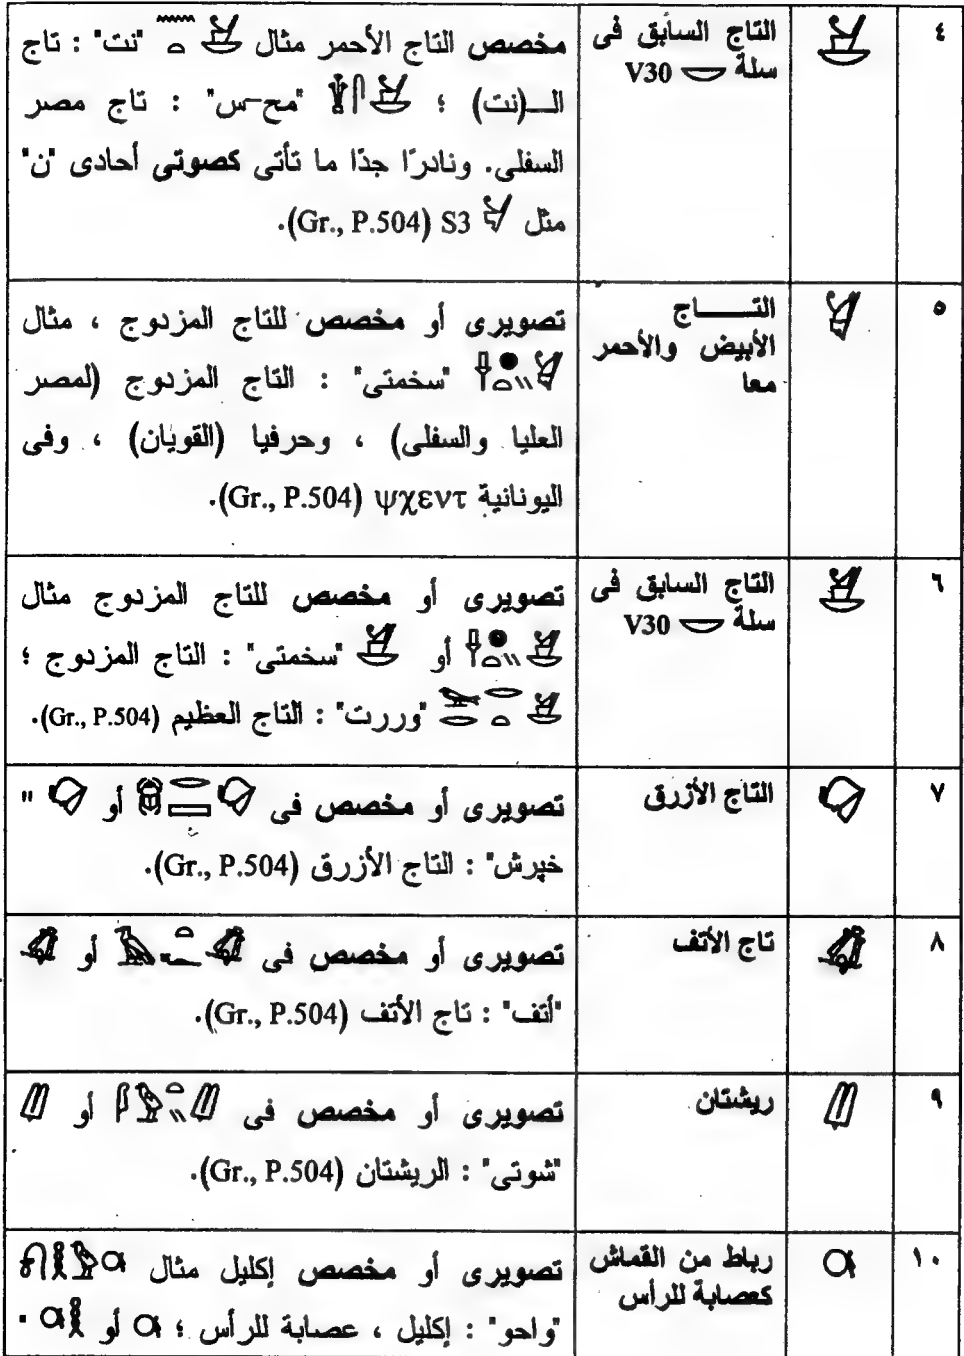 ٤
التاج السابق فى
سلة 𓎟 V30
مخصص التاج الأحمر مثال "نت" : تاج
الـ(نت) ؛ "مح-س" : تاج مصر
السفلى. ونادرًا جدًا ما تأتى كصوتى أحادى "ن"
مثل 𓋔 S3 (Gr., P.504).
٥
التـــــاج
الأبيض والأحمر
معا
تصويرى أو مخصص للتاج المزدوج ، مثال
"سخمتى" : التاج المزدوج (لمصر
العليا والسفلى) ، وحرفيا (القويان) ، وفى
اليونانية ψχεντ (Gr., P.504).
٦
التاج السابق فى
سلة 𓎟 V30
تصويرى أو مخصص للتاج المزدوج مثال
أو "سخمتى" : التاج المزدوج ؛
"وررت" : التاج العظيم (Gr., P.504).
٧
التاج الأزرق
تصويرى أو مخصص فى 𓆣𓂋𓈙𓋙 أو 𓋙 "
خپرش" : التاج الأزرق (Gr., P.504).
٨
تاج الأتف
تصويرى أو مخصص فى أو
"أتف" : تاج الأتف (Gr., P.504).
٩
ريشتان
تصويرى أو مخصص فى أو 𓋛
"شوتى" : الريشتان (Gr., P.504).
١٠
رباط من القماش
كعصابة للرأس
تصويرى أو مخصص إكليل مثال
"واحو" : إكليل ، عصابة للرأس ؛ 𓋜 أو 𓎛𓋜 .